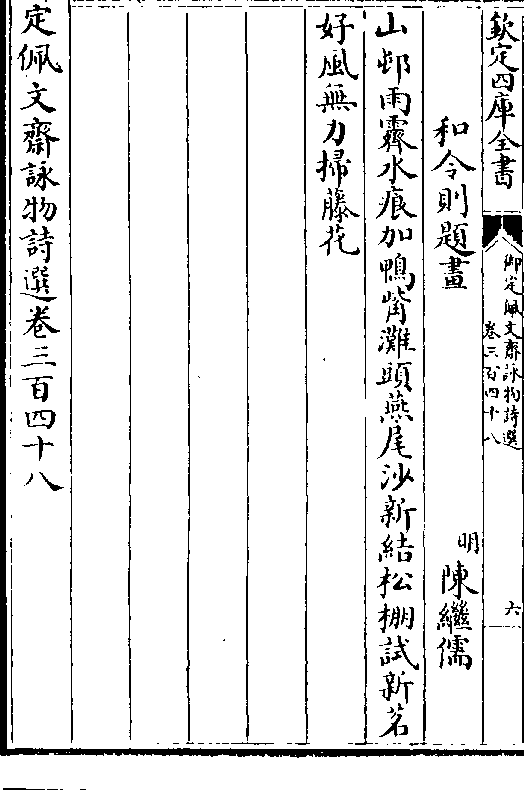 欽定四庫全書
御定佩文齋詠物詩選
卷三百四十八
六
和令則題畫
明
陳繼儒
山邨雨霽水痕加鴨觜灘頭燕尾沙新結松棚試新茗
好風無力掃藤花
定佩文齋詠物詩選卷三百四十八